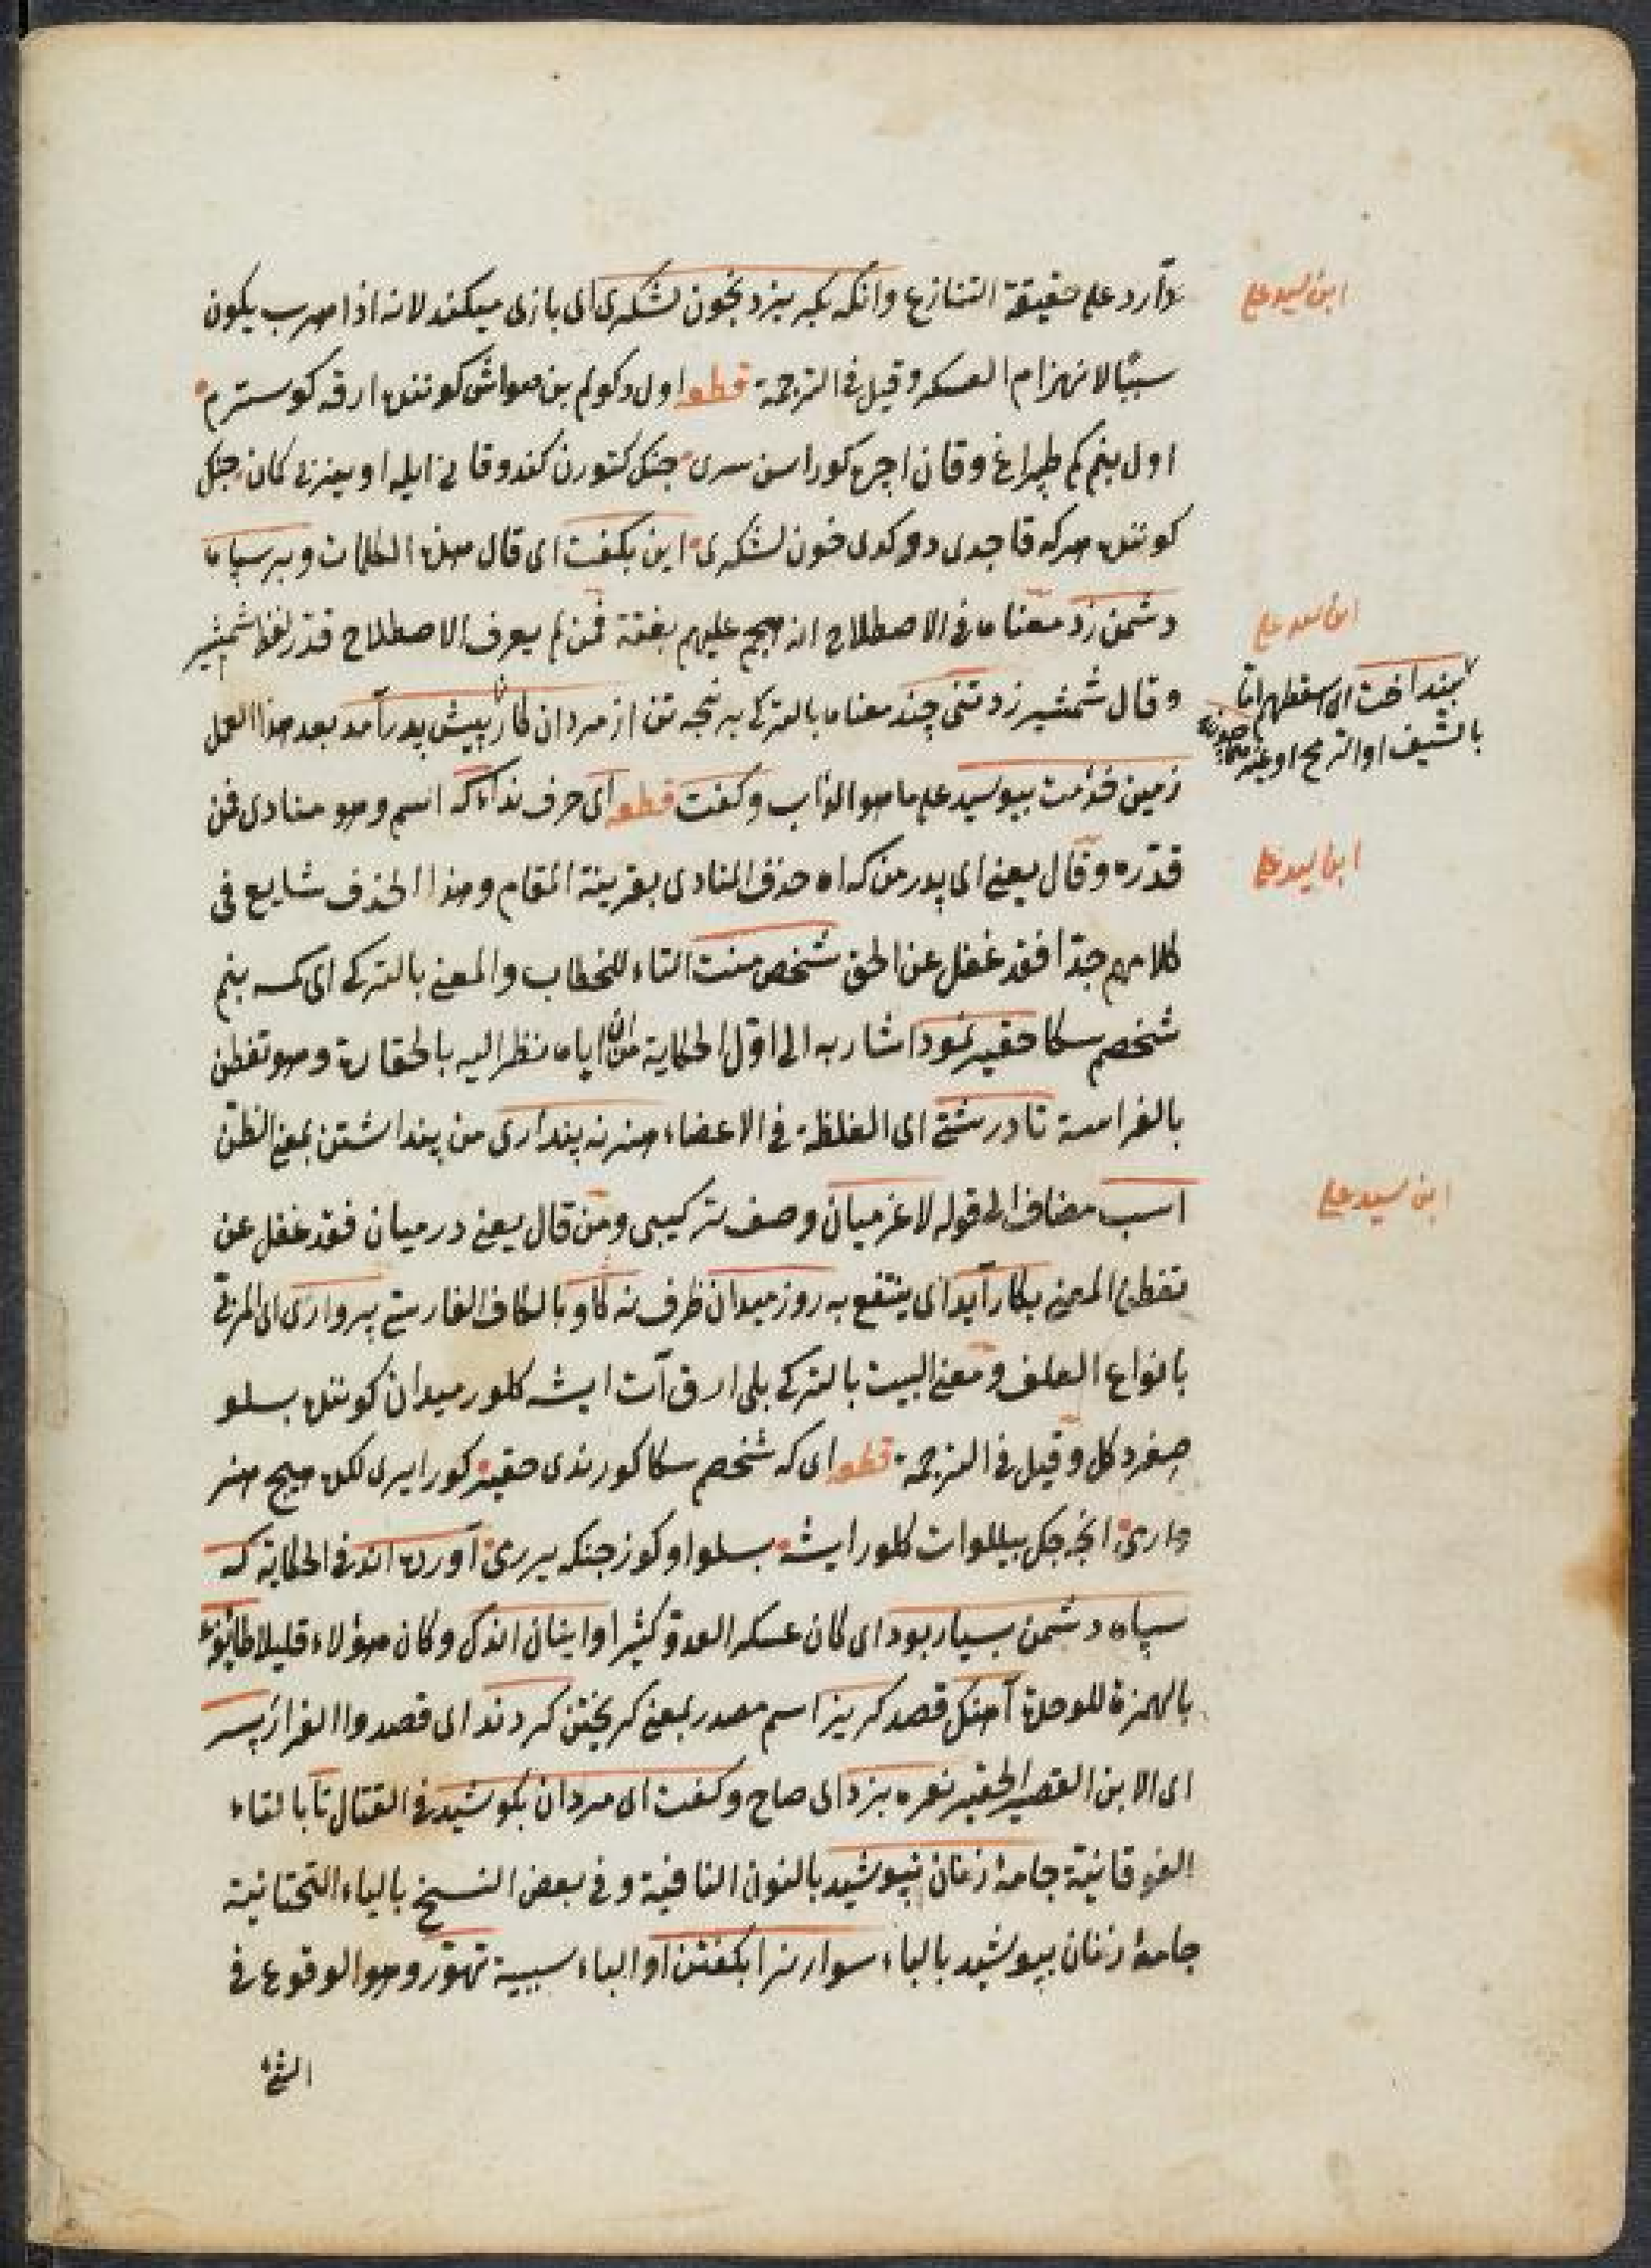 وارد على حقيقة التنازع وانكه بكريزد بخون لشكرى اى بازى ميكند لانه اذا هرب يكون
سببًا لانهزام العسكر وقيل فى الترجمة قطعه اول دكولم بن صواش كوننده ارقه كوسترم
اول بنم كم طپراغ وقان اجره كوراسن سرى جنك كتورن كندو قانى ايله اوينر كان جنك
كوننده هركه قاجدى دوكدى خون لشكرى اين بكفت اى قال هذه الكلمات وبر سپاه
دشمن زد معناه فى الاصطلاح انه هجم عليهم بغتة فمن لم يعرف الاصطلاح قدر لفظ شمشير
وقال شمشير زد تنى چند معناه بالتركى برنجه تن از مردان كار پيش پدر آمد بعد هذا العمل
زمين خدمت ببوسيد على ما هو الداب وكفت قطعه اى حرف نداء كه اسم وهو منادى فمن
قدره وقال يعنى اى پدر من كه اه حذف المنادى بقرينة المقام وهذا الحذف شايع فى
كلامهم جدا فقد غفل عن الحق شخص منت التاء للخطاب والمعنى بالتركى اى كمسه بنم
شخصم سكا حقير نمود اشار به الى اول الحكاية من ان اياه نظر اليه بالحقارة وهو تفطن
بالفراسة تا درشتى اى الغلظة فى الاعضاء هنر نه پندارى من پنداشتن بمعنى الظن
اسب مضاف الى قوله لاغر ميان وصف تركيبى ومن قال يعنى در ميان فقد غفل عن
تفطن المعنى بكار آيد اى ينتفع به روز ميدان ظرف نه كاو بالكاف الفارسى پروارى اى المربى
بانواع العلف ومعنى البيت بالتركى بلى ارق آت ايشه كلور ميدان كوننده بسلو
صغر دكل وقيل فى الترجمة قطعه اى كه شخصم سكا كورندى حقير كور ايرى لكن هيچ هنر
وارى انجه جكل بيللو ات كلور ايشه بسلو اوكوز جنكه يررى آورده اند فى الحكاية كه
سپاه دشمن بسيار بود اى كان عسكر العدو كثيرا واينان اندك وكان هؤلاء قليلا طائفۀ
بالهمزة للوحدة آهنك قصد كريز اسم مصدر بمعنى كريختن كردند اى قصدوا الفرار پسر
اى الابن القصير الحقير نعره بزد اى صاح وكفت اى مردان بكوشيد فى القتال تا بالتاء
الفوقانية جامۀ زنان نپوشيد بالنون النافية وفى بعض النسخ بالياء التحتانية
جامۀ زنان بپوشيد بالباء سوارنرا بكفتن او الباء سببية تهور وهو الوقوع فى
الشئ
ابن سيد على
ابن سيد على
بينداخت اى اسقطهم اما
بالسيف او الرمح او غيره
ابن سيد على
ابن سيد على